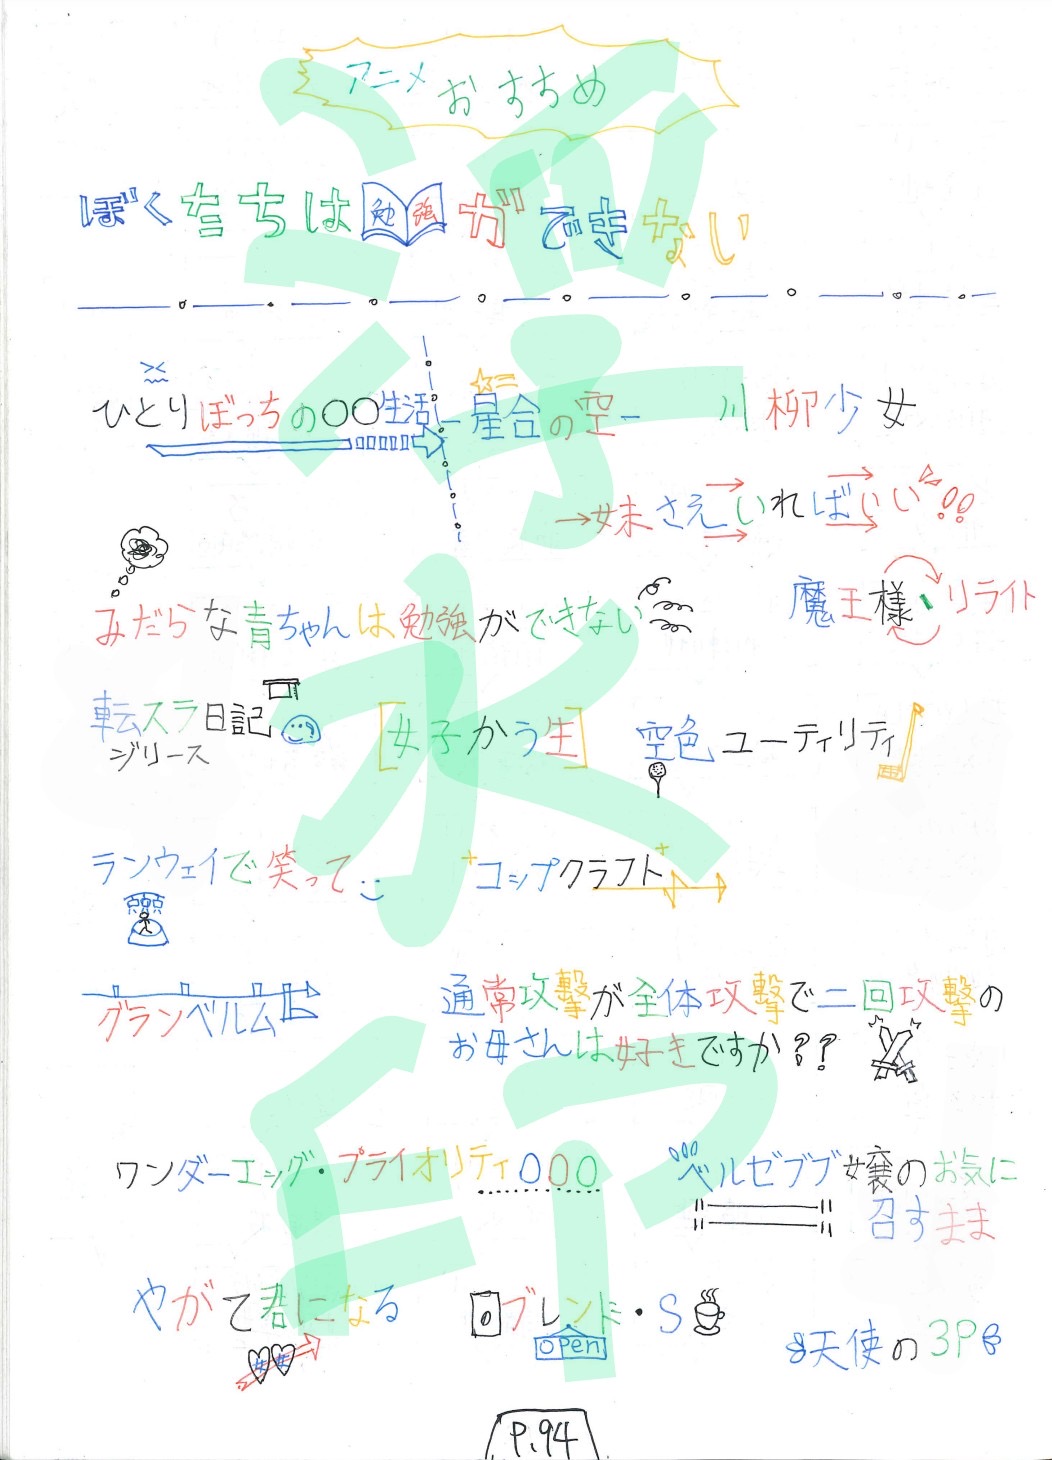 アニメ おすすめ
ぼくたちは勉強ができない
ひとりぼっちの○○生活
星合の空
川柳少女
妹さえいればいい!!
みだらな青ちゃんは勉強ができない
魔王様、リライト
転スラ日記
ジリース
[女子かう生]
空色ユーティリティ
ランウェイで笑って
コップクラフト
グランベルム
通常攻撃が全体攻撃で二回攻撃の
お母さんは好きですか??
ワンダーエッグ・プライオリティ
ベルゼブブ嬢のお気に
召すまま
やがて君になる
ブレンド・S
OPEN
天使の3P
P.94